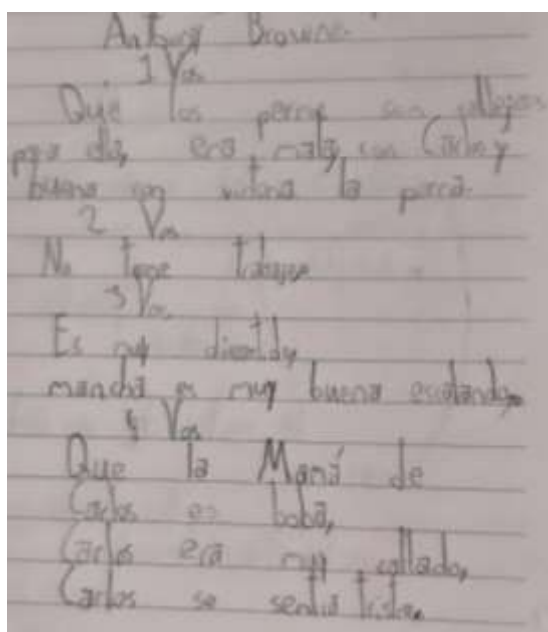 Antony Browne
1 Voz
Que los perros son
para ella, era mala con Carlos y
buena con victoria la perra.
2 Voz
No tiene trabajo
3 Voz
Es muy
mancha es muy buena escalando.
4 Voz
Que la Mamá de
Carlos es boba,
Carlos era muy callado,
Carlos se sentia triste.